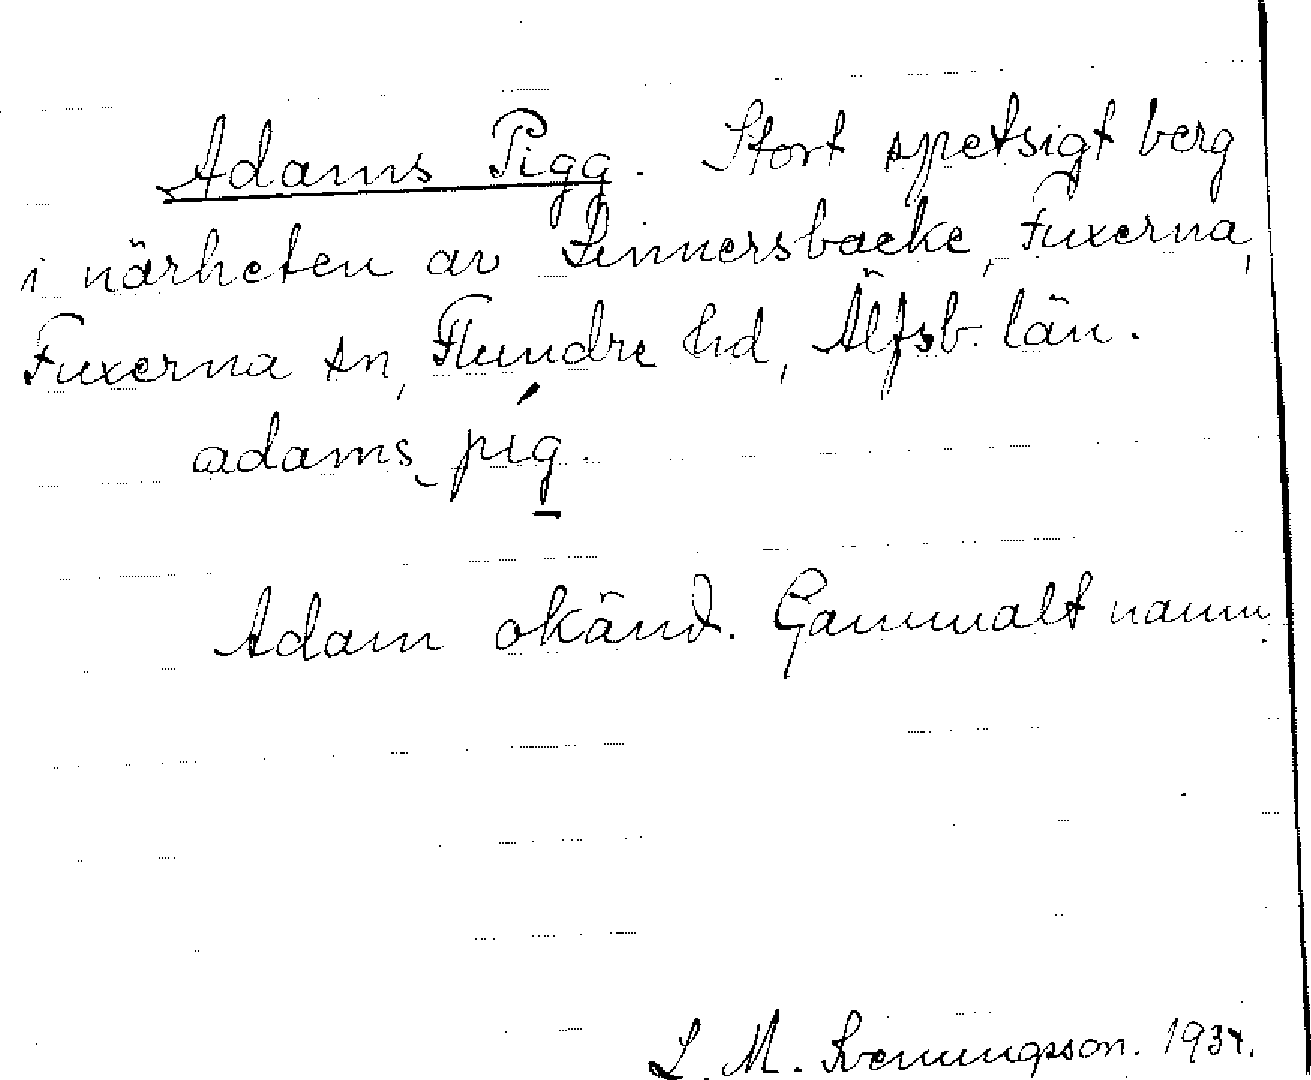 Adams Pigg. Stort spetsigt berg
i närheten av Sinnersbacke, Fuxerna,
Fuxerna sn, Flundre hd, Älfsb. län.
adams pig.
Adam okänd. Gammalt namn.
L. M. Svenungsson. 1934.